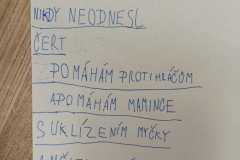 NIKDY NEODNESL
ČERT
POMÁHÁM PROTIHLÁČŮM
A POMÁHÁM MAMINCE
S UKLÍZENÍM MYČKY